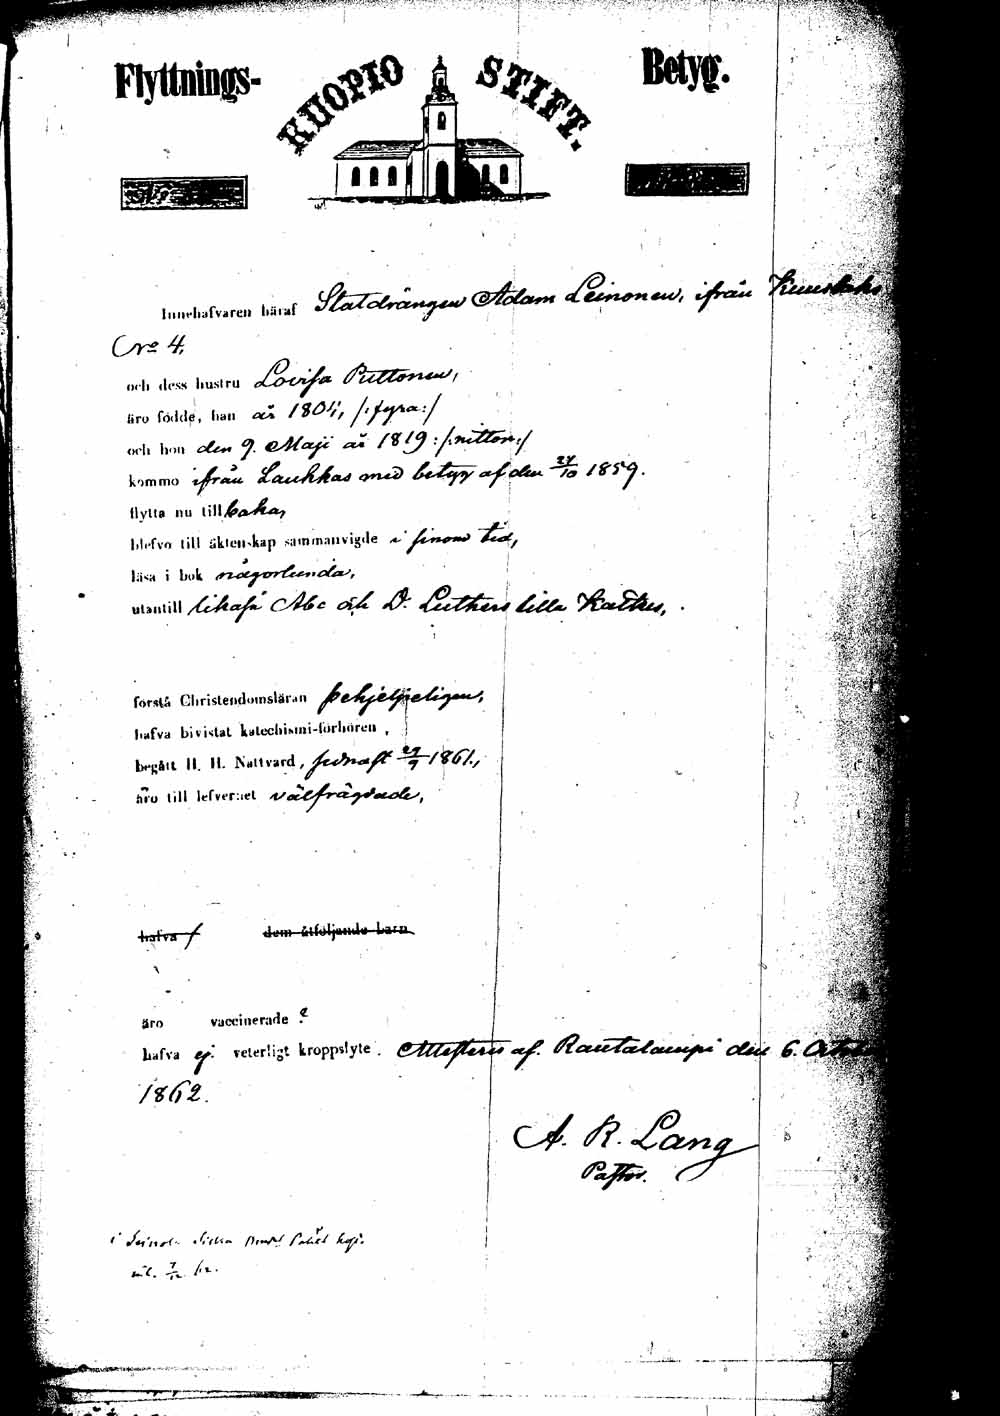 Flyttnings- KUOPIO STIFT. Betyg.
Innehafvaren häraf Statdrängen Adam Leinonen, ifrån
No 4,
och dess hustru Lovisa Puttonen,
äro födde, han år 1804, /:fyra:/
och hon den 9. Maji år 1819 :/:nitton:/
kommo ifrån Laukkas med betyg af den 27/10 1859.
flytta nu tillbaka,
blefvo till äktenskap sammanvigde i sinom tid,
läsa i bok någorlunda,
utantill likaså Abc och D. Luthers lilla
förstå Christendomsläran behjelpeligen,
hafva bivistat katechismi-förhören,
begått H. H. Nattvard, sednast 29/9 1861.,
äro till lefvernet välfrägdade,
hafva dem åtföljande barn
äro vaccinerade ?
hafva ej veterligt kroppslyte. Attesteras af. Rautalampi den 6.
1862.
A. R. Lang
Pastor.